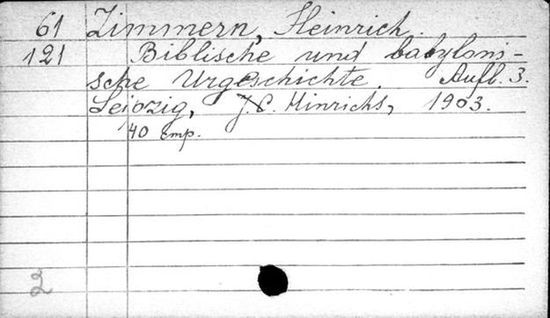 61 Zimmern, Heinrich.
121 Biblische und babyloni-
sche Urgeschichte. Aufl. 3.
Leipzig, J.C. Hinrichs, 1903.
40 cmp.
2